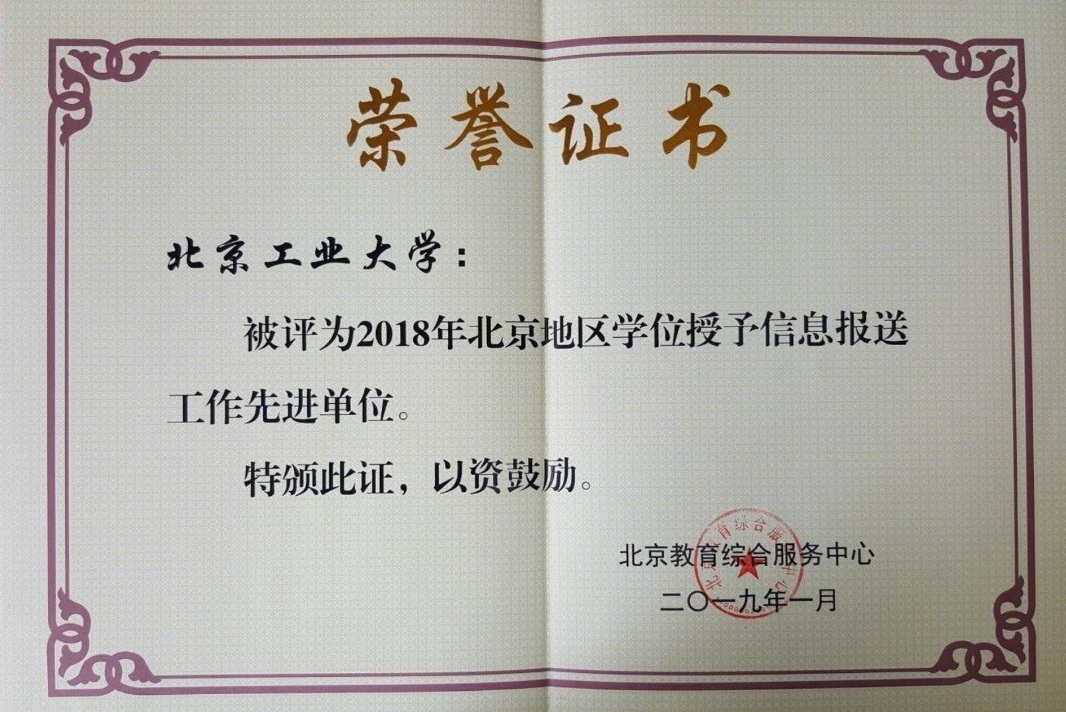 荣誉证书
北京工业大学：
被评为2018年北京地区学位授予信息报送
工作先进单位。
特颁此证，以资鼓励。
北京教育综合服务中心
二〇一九年一月